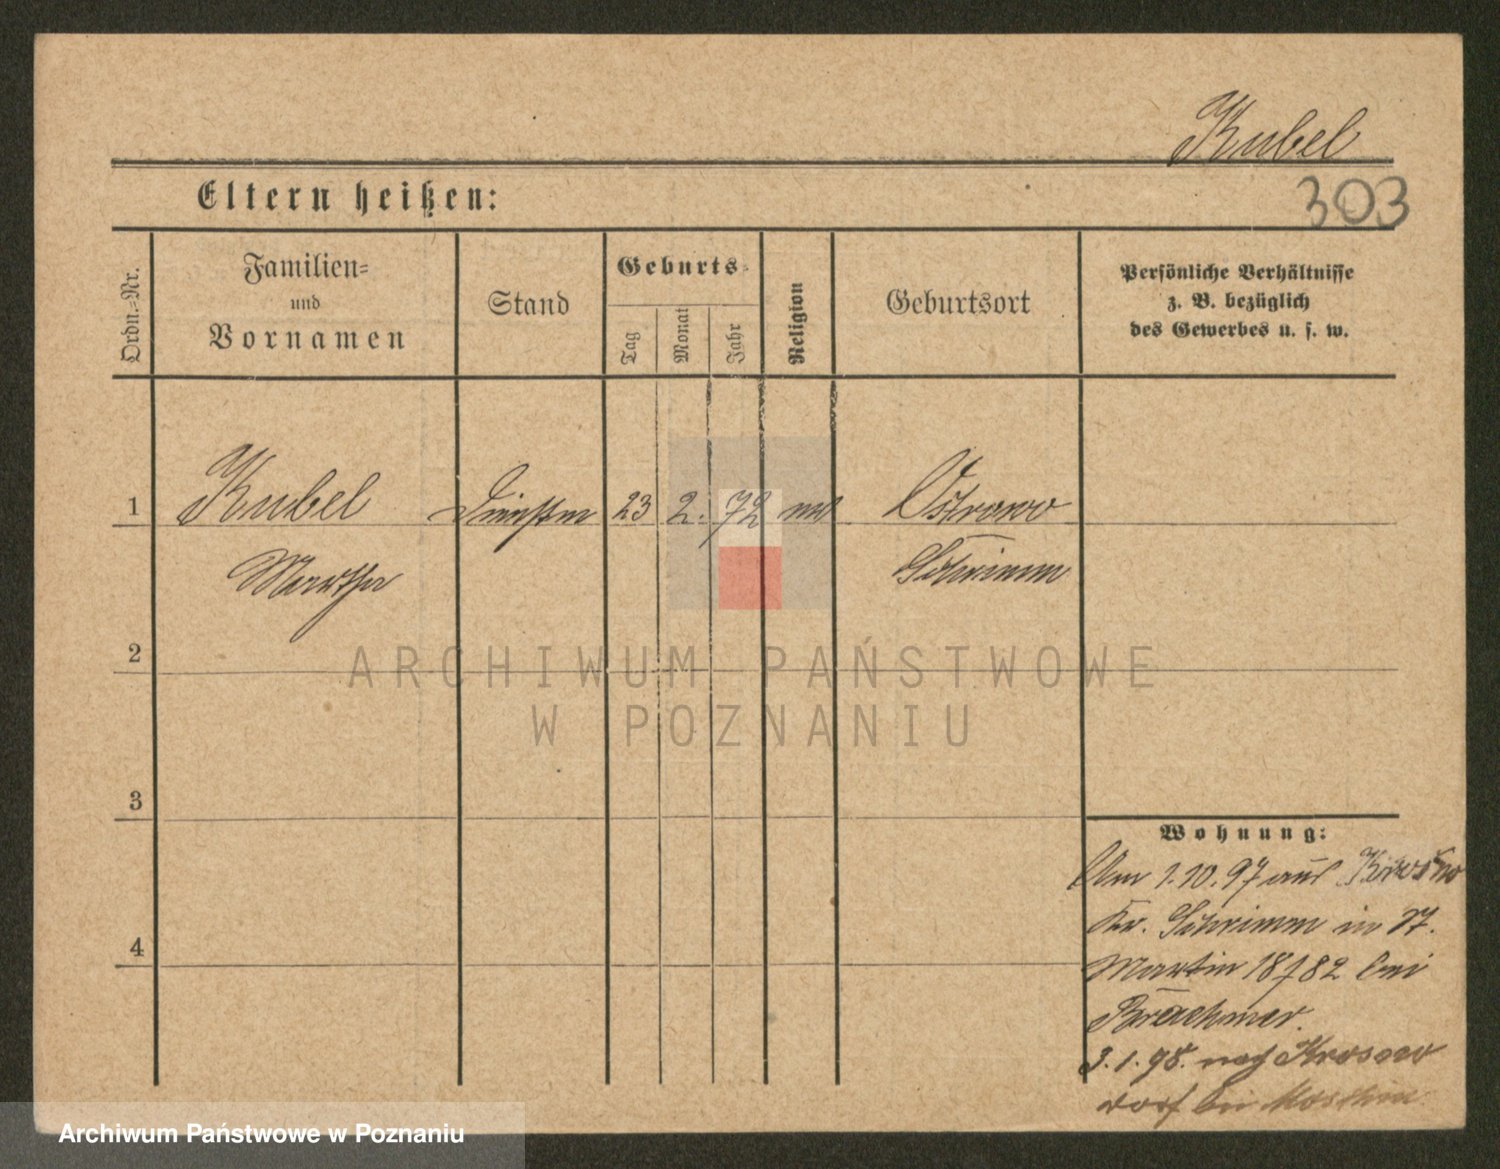 Kubel
303
Eltern heißen:
Ordn.-Nr.
Familien-
und
Vornamen
Stand
Geburts-
Tag
Monat
Jahr
Religion
Geburtsort
Persönliche Verhältnisse
z. B. bezüglich
des Gewerbes u. s. w.
1
Kubel
23
2.
72
Ostrowo
Martha
Schrimm
2
ARCHIWUM PAŃSTWOWE
W POZNANIU
3
Wohnung:
Am 1.10.97 aus
Kr. Schrimm in St.
4
Martin 18/82 bei
3.1.98. nach
dorf bei Moschin
Archiwum Państwowe w Poznaniu